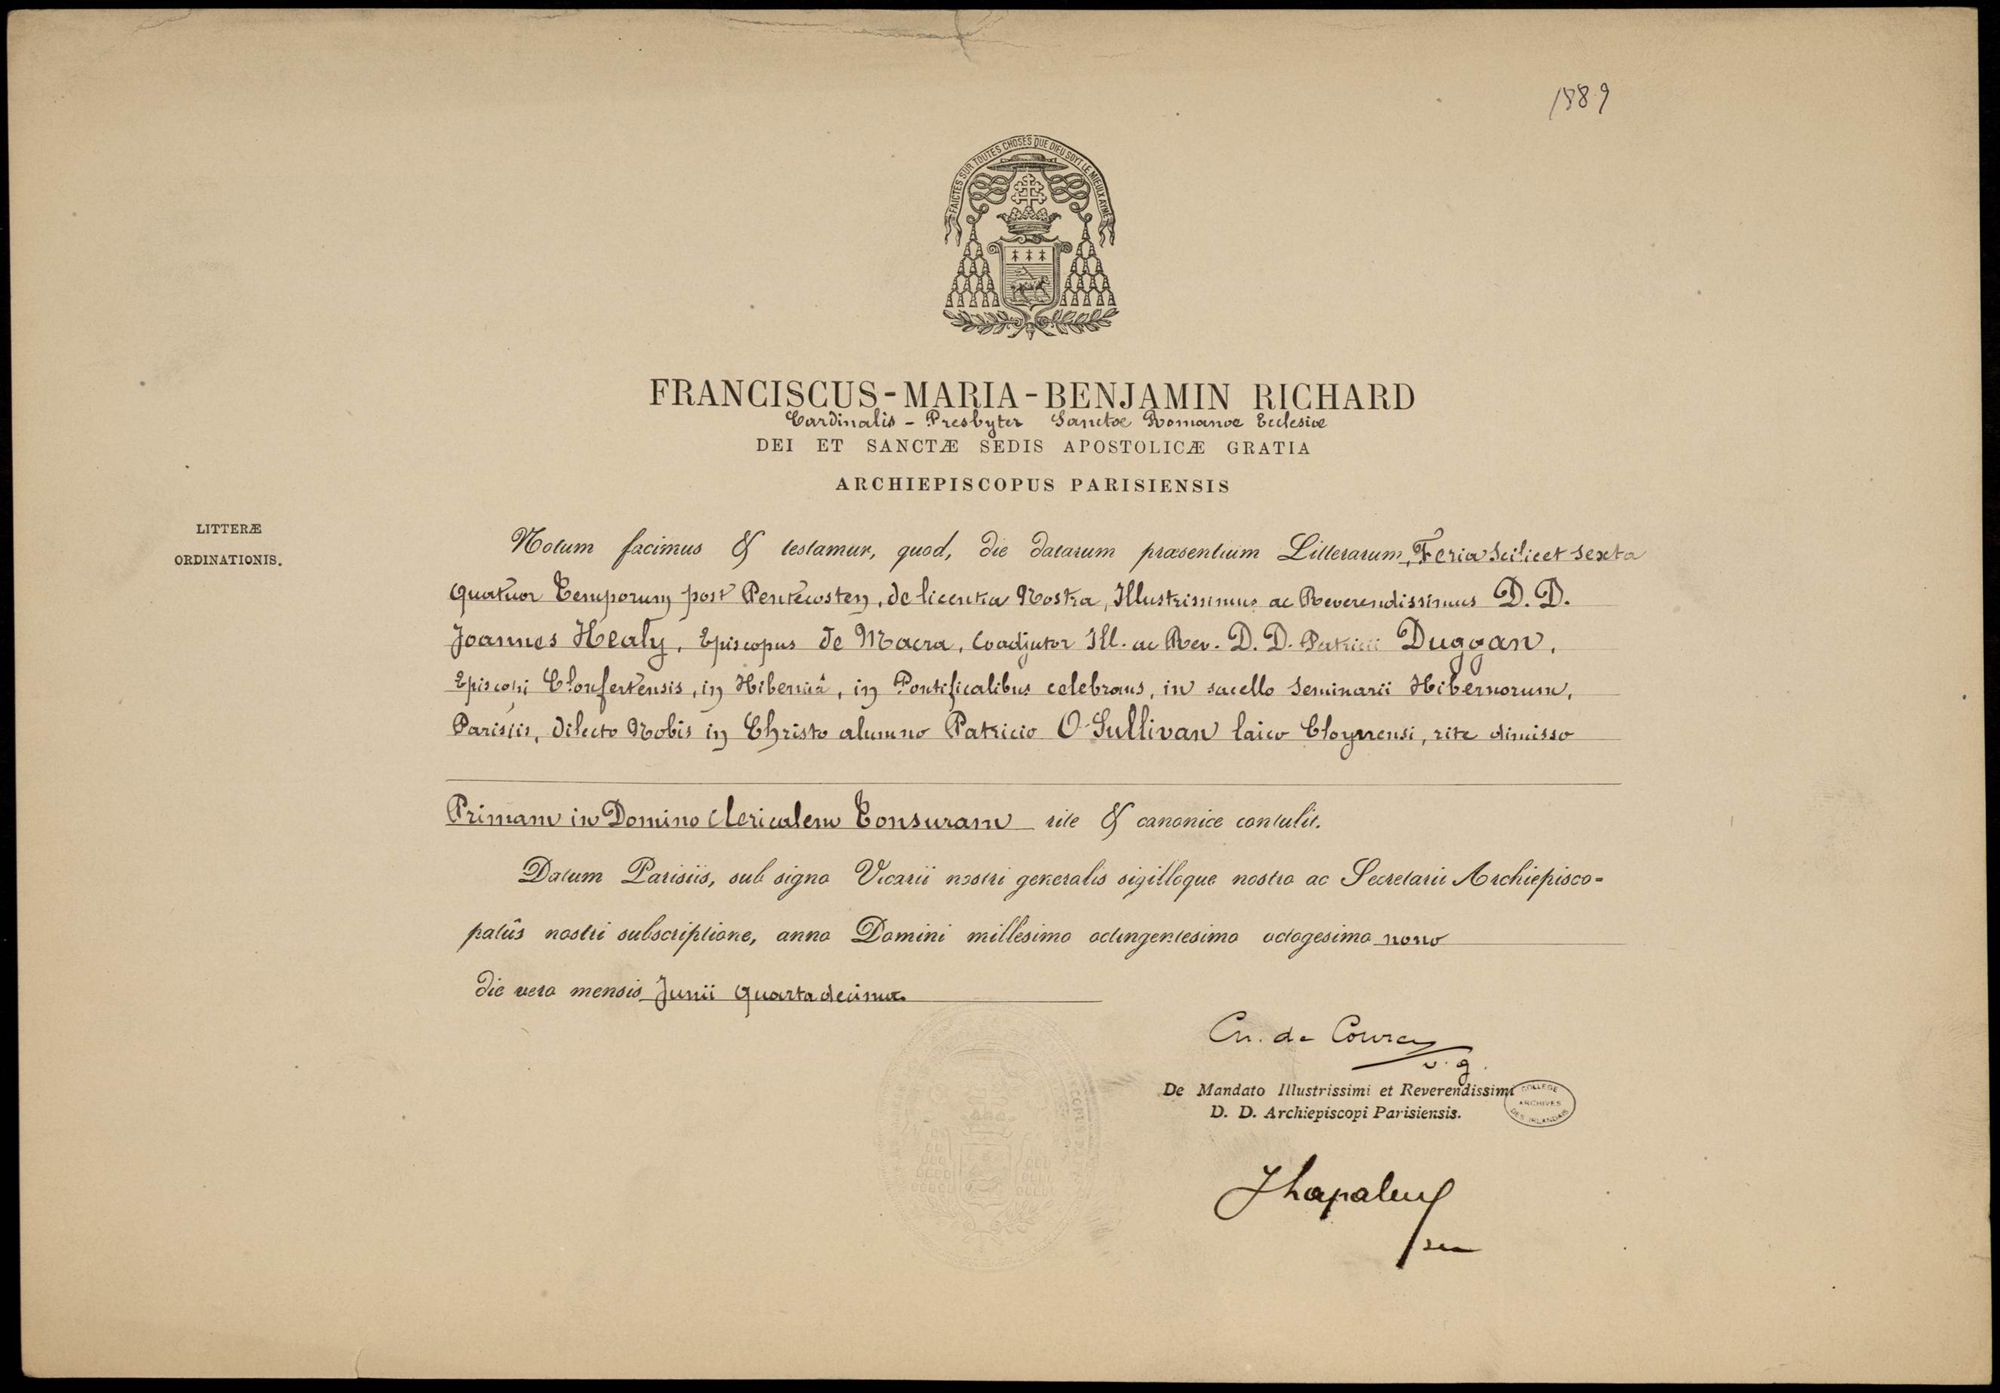 1889
FAICTES SUR TOUTES CHOSES QUE DIEU SOYT LE MIEUX AYMÉ
FRANCISCUS-MARIA-BENJAMIN RICHARD
Cardinalis - Presbyter Sanctæ Romanæ Ecclesiæ
DEI ET SANCTÆ SEDIS APOSTOLICÆ GRATIA
ARCHIEPISCOPUS PARISIENSIS
LITTERÆ
ORDINATIONIS.
Notum facimus & testamur, quod, die datarum præsentium Litterarum, Feria scilicet sexta
quatuor Temporum post Pentecosten, de licentia Nostra, Illustrissimus ac Reverendissimus D. D.
Joannes Healy, Episcopus de Macra, Coadjutor Ill. ac Rev. D. D. Patricii Duggan,
Episcopi Clonfertensis, in Hiberniâ, in Pontificalibus celebrans, in sacello Seminarii Hibernorum,
Parisiis, dilecto Nobis in Christo alumno Patricio O'Sullivan laico Cloynensi, rite dimisso
Primam in Domino Clericalem Tonsuram rite & canonice contulit.
Datum Parisiis, sub signo Vicarii nostri generalis sigilloque nostro ac Secretarii Archiepisco-
patûs nostri subscriptione, anno Domini millesimo octingentesimo octogesimo nono
die vero mensis Junii quarta decima.
de Courcy
v. g.
De Mandato Illustrissimi et Reverendissimi
D. D. Archiepiscopi Parisiensis.
COLLEGE
ARCHIVES
DES IRLANDAIS